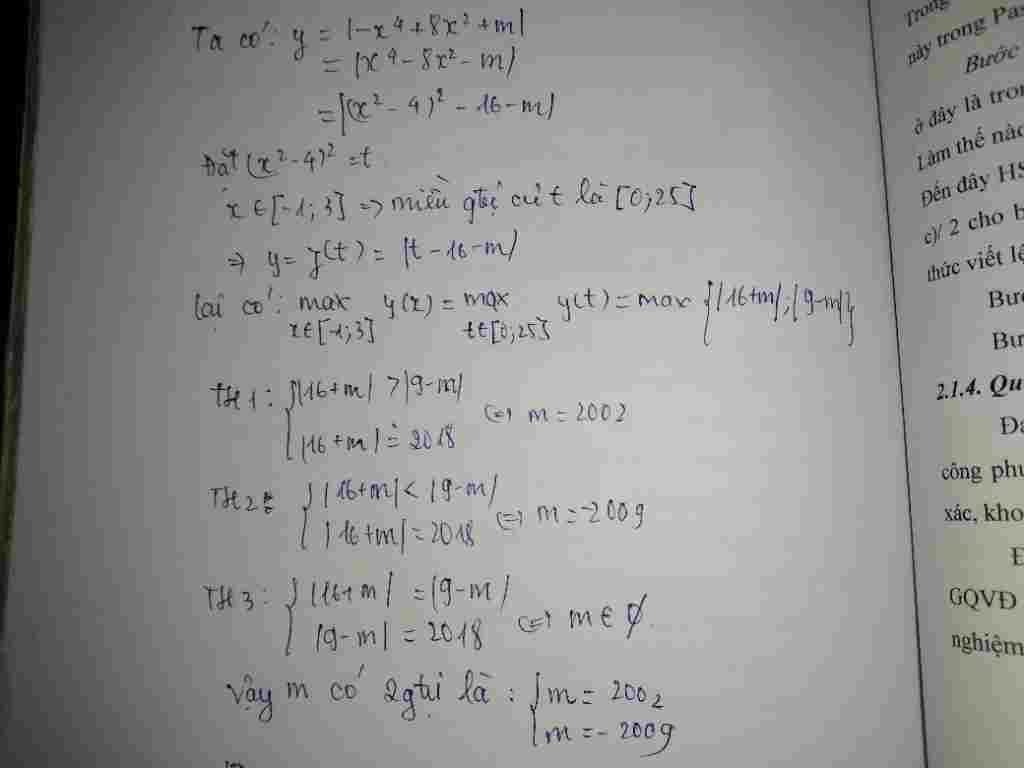 Ta có: y = |-x⁴ + 8x² + m|
= |x⁴ - 8x² - m|
= |(x² - 4)² - 16 - m|
Đặt (x² - 4)² = t
x ∈ [-1; 3] => miền gtrị của t là [0; 25]
=> y = y(t) = |t - 16 - m|
lại có: max y(x) = max y(t) = max {|16+m|; |9-m|}
x∈[-1;3] t∈[0;25]
TH1: {|16+m| > |9-m|
|16+m| = 2018 <=> m = 2002
TH2: {|16+m| < |9-m|
|16+m| = 2018 <=> m = -2009
TH3: {|16+m| = |9-m|
|9-m| = 2018 <=> m ∈ ∅.
Vậy m có 2 gtrị là: {m = 2002
m = -2009
Trong
này trong Pas
Bước
ở đây là tron
Làm thế nào
Đến đây HS
c)/ 2 cho b
thức viết lệ
Bướ
Bư
2.1.4. Qu
Đa
công phu
xác, kho
Đ
GQVĐ
nghiệm